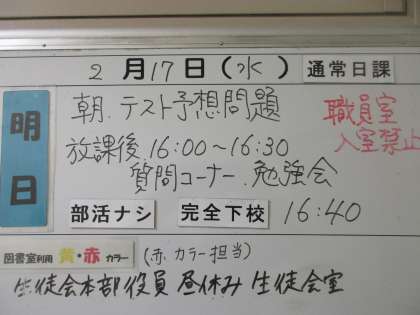 2月17日(水) 通常日課
明日
朝.テスト予想問題
放課後.16:00~16:30
質問コーナー.勉強会
職員室
入室禁止
部活ナシ 完全下校 16:40
図書室利用 黄・赤カラー (赤カラー担当)
生徒会本部役員 昼休み 生徒会室